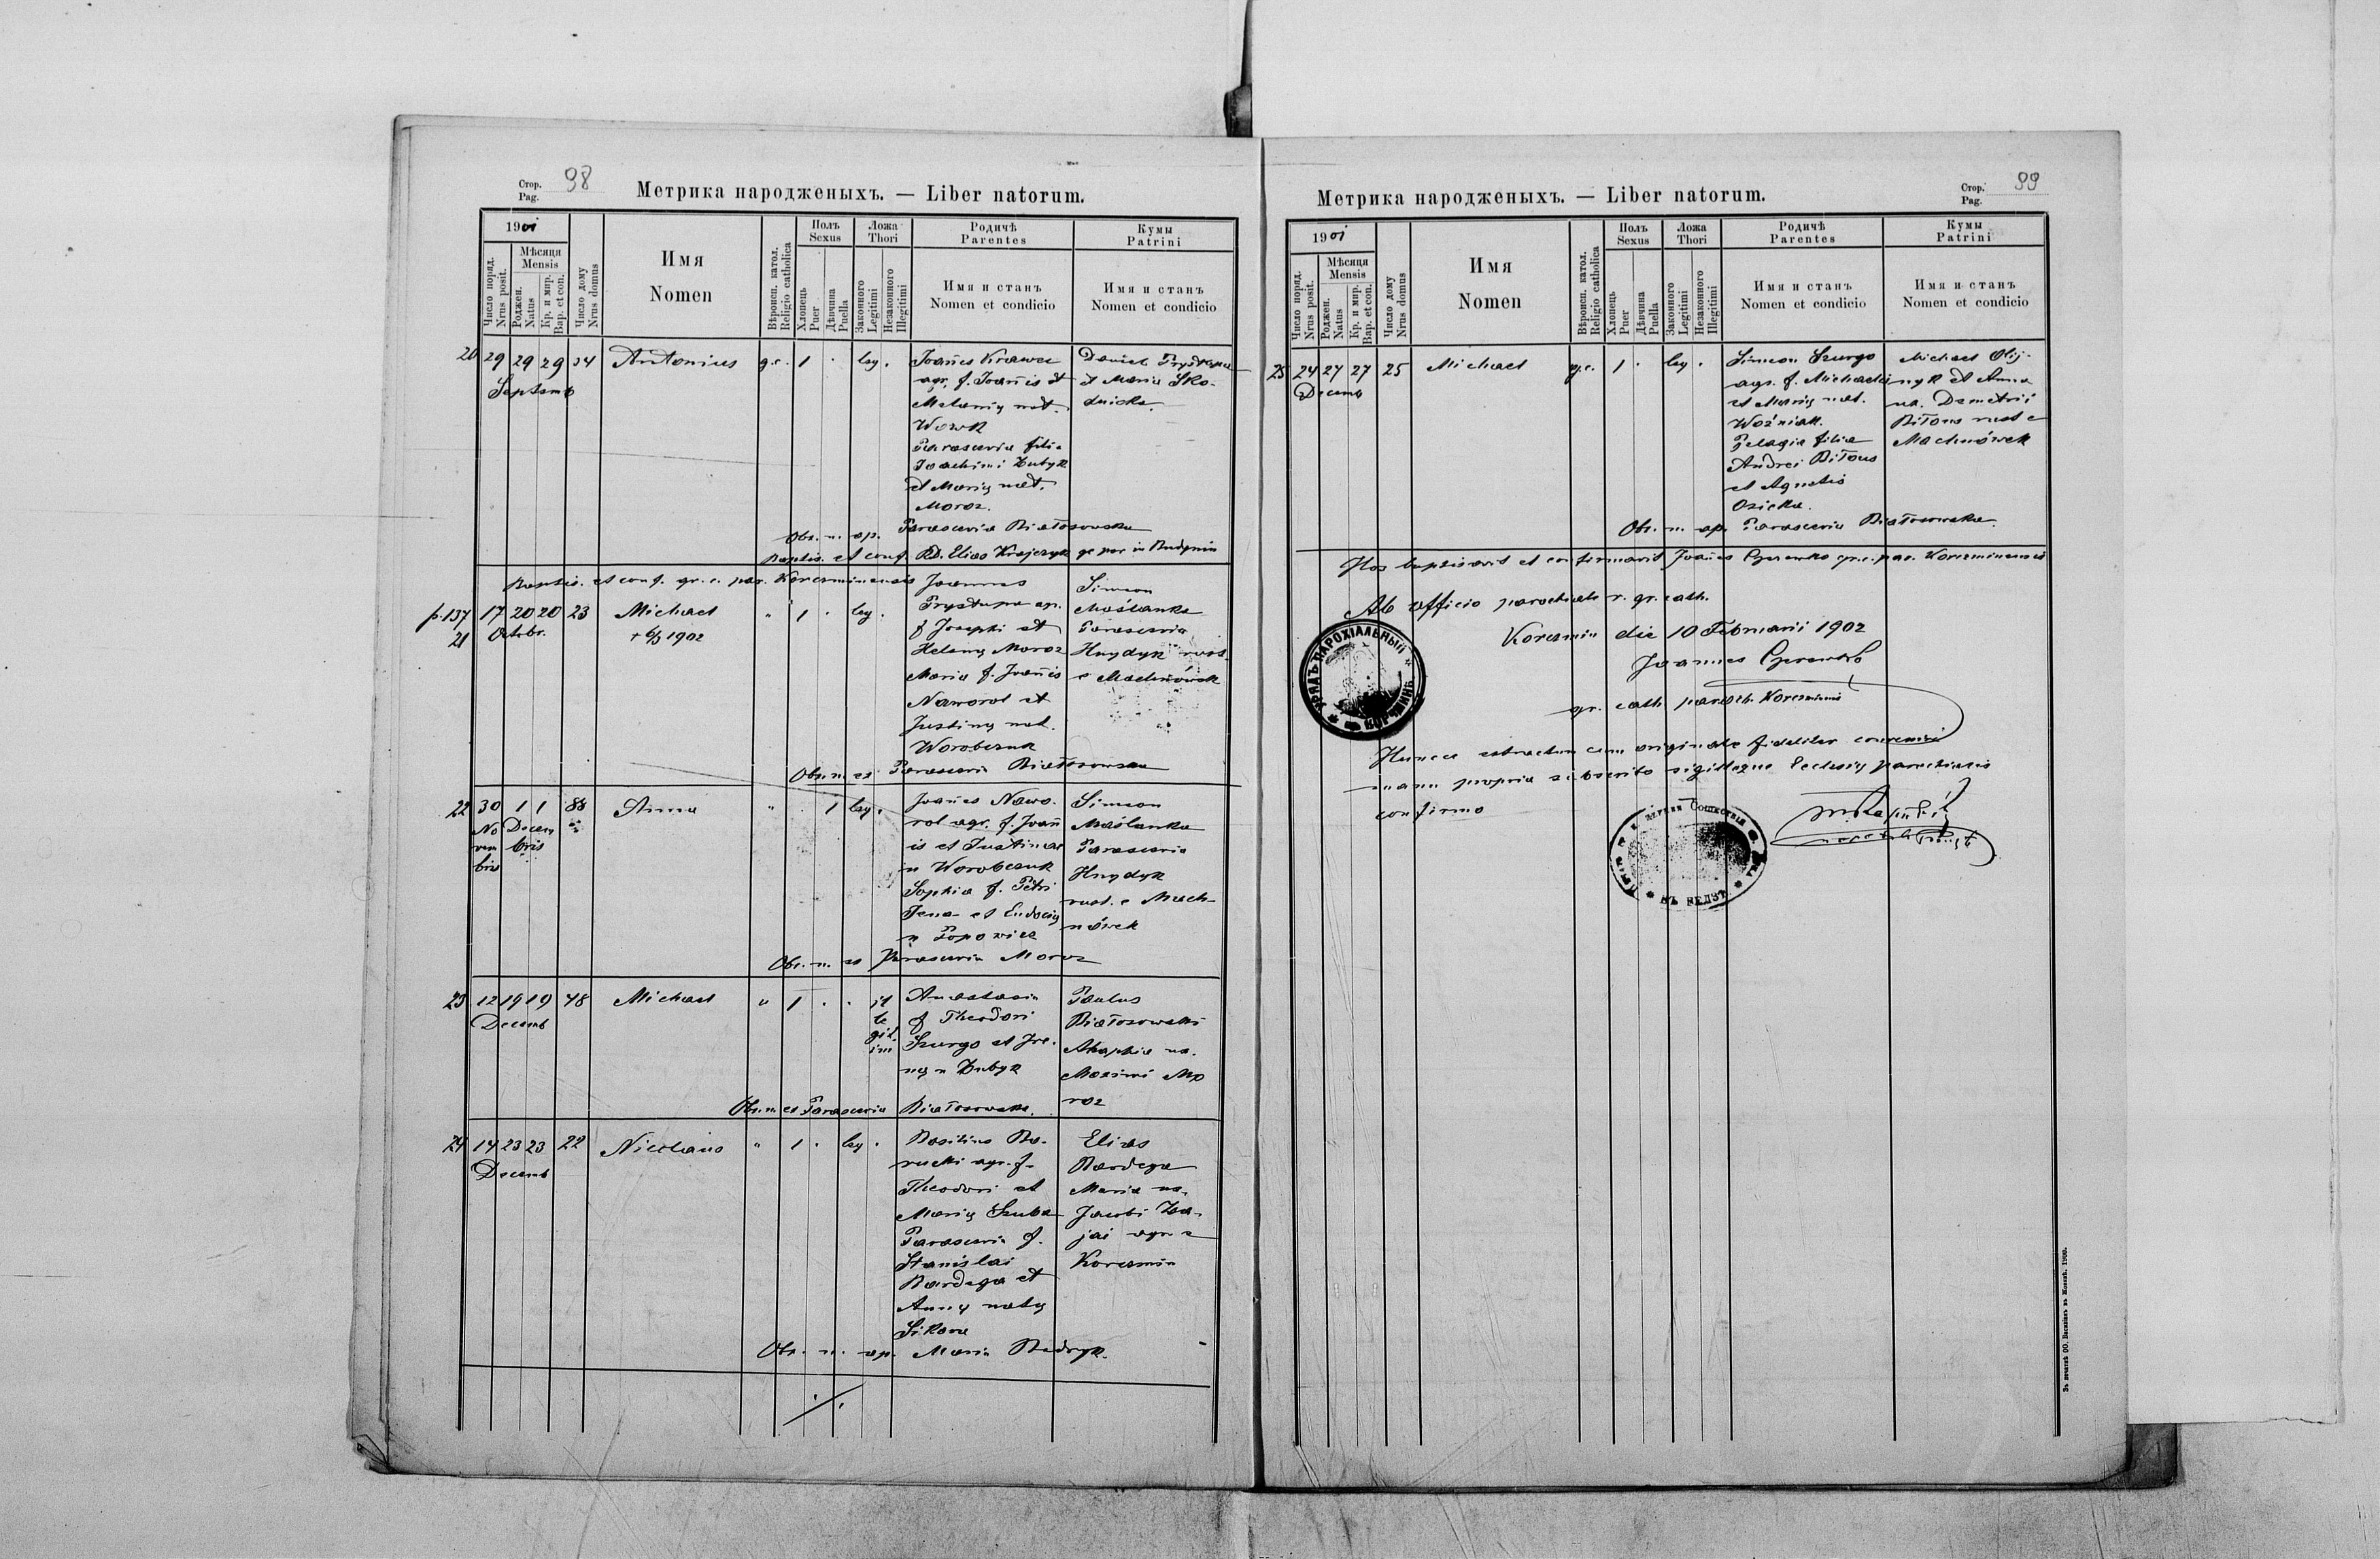 Стор.
Pag. 98
Метрика народженыхъ. — Liber natorum.
1901
Число поряд.
Nrus posit.
Мѣсяця
Mensis
Роджен.
Natus
Кр. и мир.
Bap. et con.
Число дому
Nrus domus
Имя
Nomen
Вѣроисп. катол.
Religio catholica
Полъ
Sexus
Хлопець
Puer
Дѣвчина
Puella
Ложа
Thori
Законного
Legitimi
Незаконного
Illegitimi
Родичѣ
Parentes
Имя и станъ
Nomen et condicio
Кумы
Patrini
Имя и станъ
Nomen et condicio
20 29 29 29 34 Antonius g.c. 1 . leg .
Septemb
Joañes Krawec
agr. f. Joañis et
Melanię nat.
Wowk
Parascevia filia
Joachimi Dubyk
et Marię nat.
Moroz.
Daniel Prystupa
et Maria Sko-
dnicka.
Obs. n. ap. Parascevia Białosowska
Baptis. et conf. RD. Elias Krajczyk gc par in Budynin
Baptis. et conf. gr. c. par. Korczminensis
p. 137 17 20 20 23 Michael " 1 . leg .
21 Octobr. + 6/3 1902
Joannes
Prystupa ap.
f Josephi et
Helenę Moroz
Maria f. Joañis
Naworol et
Justinę nat.
Worobczuk
Simeon
Maślanka
Parascevia
Hnydyk rust.
e Machnówek
Obs. n. es Parascevia Białosowska
22 30 1 1 88 Anna " . 1 leg .
No Decem
vem bris
bris
Joañes Nawo-
rol agr. f. Joañ
is et Justinae
n Worobczuk
Sophia f. Petri
Jena et Eudocię
n Popowicz
Simeon
Maślanka
Parascevia
Hnydyk
rust. e Mach-
nówek
Obs. n. es Parascevia Moroz
23 12 19 19 48 Michael " 1 . . il
Decemb le
git.
im
Anastasia
f Theodori
Szurgo et Ire-
nę n Dubyk
Paulus
Białosowski
Ahaphia ux.
Maximi Mo
roz
Obs. n. es Parascevia Białosowska.
24 14 23 23 22 Nicolaus " 1 . leg .
Decemb
Basilius Bo-
rucki agr. f.
Theodori et
Marię Szuba
Parascevia f.
Stanislai
Bardyga et
Annę natę
Sikora
Elias
Bardyga
Maria ux.
Jacobi Za-
jai agr e
Korczmin
Obs. n. ap. Maria Bedryk.
Стор.
Pag. 99
Метрика народженыхъ. — Liber natorum.
1901
Число поряд.
Nrus posit.
Мѣсяця
Mensis
Роджен.
Natus
Кр. и мир.
Bap. et con.
Число дому
Nrus domus
Имя
Nomen
Вѣроисп. катол.
Religio catholica
Полъ
Sexus
Хлопець
Puer
Дѣвчина
Puella
Ложа
Thori
Законного
Legitimi
Незаконного
Illegitimi
Родичѣ
Parentes
Имя и станъ
Nomen et condicio
Кумы
Patrini
Имя и станъ
Nomen et condicio
25 24 27 27 25 Michael g.c. 1 . leg .
Decemb
Simeon Szurgo
agr. f. Michaelis
et Marię nat.
Woźniak.
Pelagia filia
Andrei Biłous
et Agnetis
Osicka.
Michael Olij-
nyk et Anna
ux. Demetrii
Biłous rust e
Machnówek
Obs. n. ap. Parascevia Białosowska.
Hos baptisavit et confirmavit Joañes gr. c. par. Korczminensis
Ab officio parochiale r. gr. cath.
Korczmin die 10 Februarii 1902
Joannes
gr. cath paroch. Korczminensis
УРЯДЪ ПАРОХІАЛЬНЫЙ
ВЪ КОРЧМИНѢ
Hunce extractum cum originale fideliter
manu propria subscripto sigilloque Ecclesię parochialis
confirmo
ВЪ
Въ печатнѣ ОО. Василіянъ въ Жовквѣ. 1900.